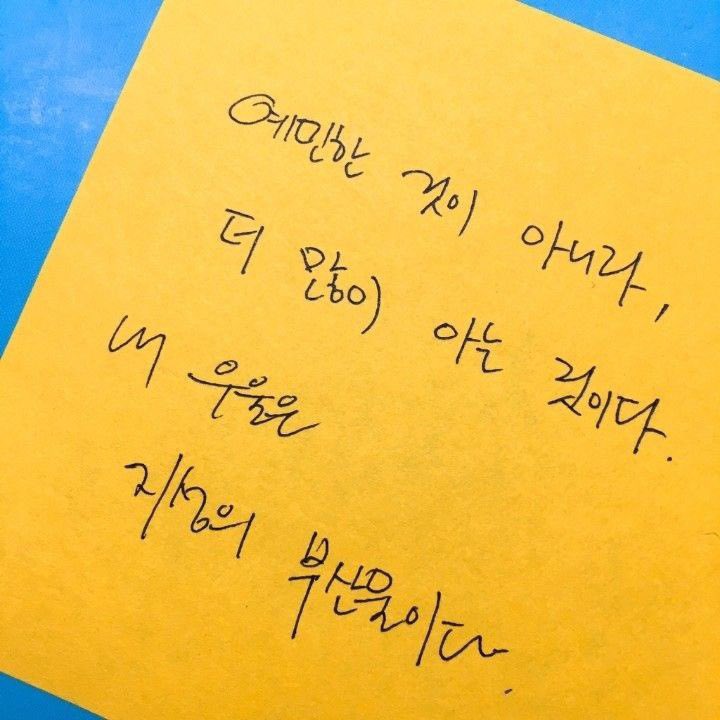 예민한 것이 아니라,
더 많이 아는 것이다.
내 우울은
지성의 부산물이다.